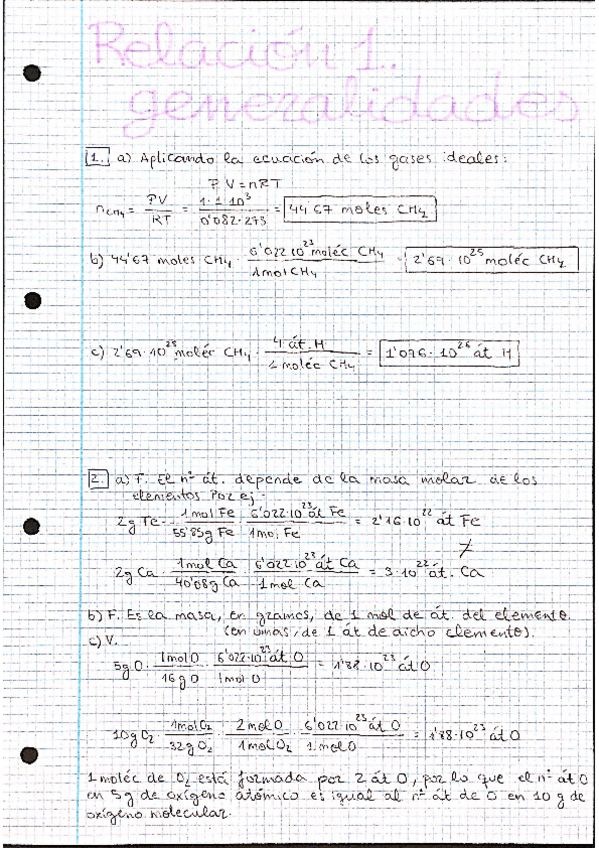 Relación 1.
generalidades
1. a) Aplicando la ecuación de los gases ideales:
PV=nRT
nCH₄ = PV/RT = 1·1·10³/0'082·273 = 44'67 moles CH₄
b) 44'67 moles CH₄ · 6'022·10²³ moléc CH₄/1mol CH₄ = 2'69·10²⁵ moléc CH₄
c) 2'69·10²⁵ moléc CH₄ · 4 át. H/1 moléc CH₄ = 1'076·10²⁶ át H
2. a) F. El nº át. depende de la masa molar de los
elementos Por ej.
2g Fe · 1mol Fe/55'85g Fe · 6'022·10²³ át Fe/1mol Fe = 2'16·10²² át Fe
≠
2g Ca · 1mol Ca/40'08g Ca · 6'022·10²³ át Ca/1mol Ca = 3·10²² át. Ca
b) F. Es la masa, en gramos, de 1 mol de át. del elemento.
(en umas, de 1 át de dicho elemento).
c) V.
5g O · 1mol O/16g O · 6'022·10²³ át O/1mol O = 1'88·10²³ át O
10g O₂ · 1mol O₂/32g O₂ · 2mol O/1mol O₂ · 6'022·10²³ át O/1mol O = 1'88·10²³ át O
1 moléc de O₂ está formada por 2 át O, por lo que el nº át O
en 5g de oxígeno atómico es igual al nº át de O en 10 g de
oxígeno molecular.